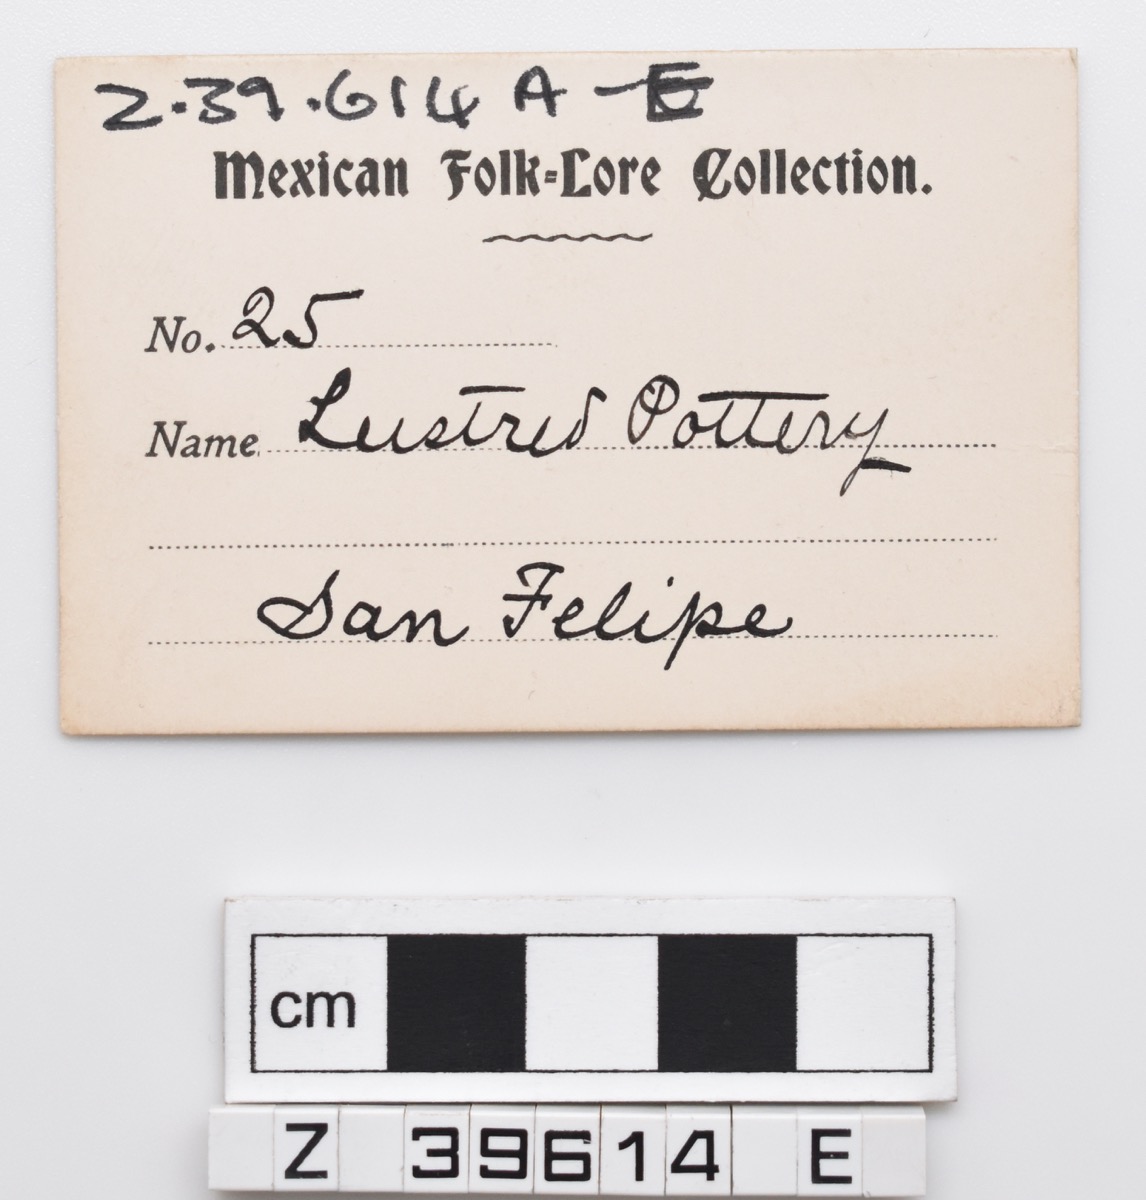 Z.39.614 A-E
Mexican Folk-Lore Collection.
No. 25
Name Lustred Pottery
San Felipe
cm
Z 39614 E